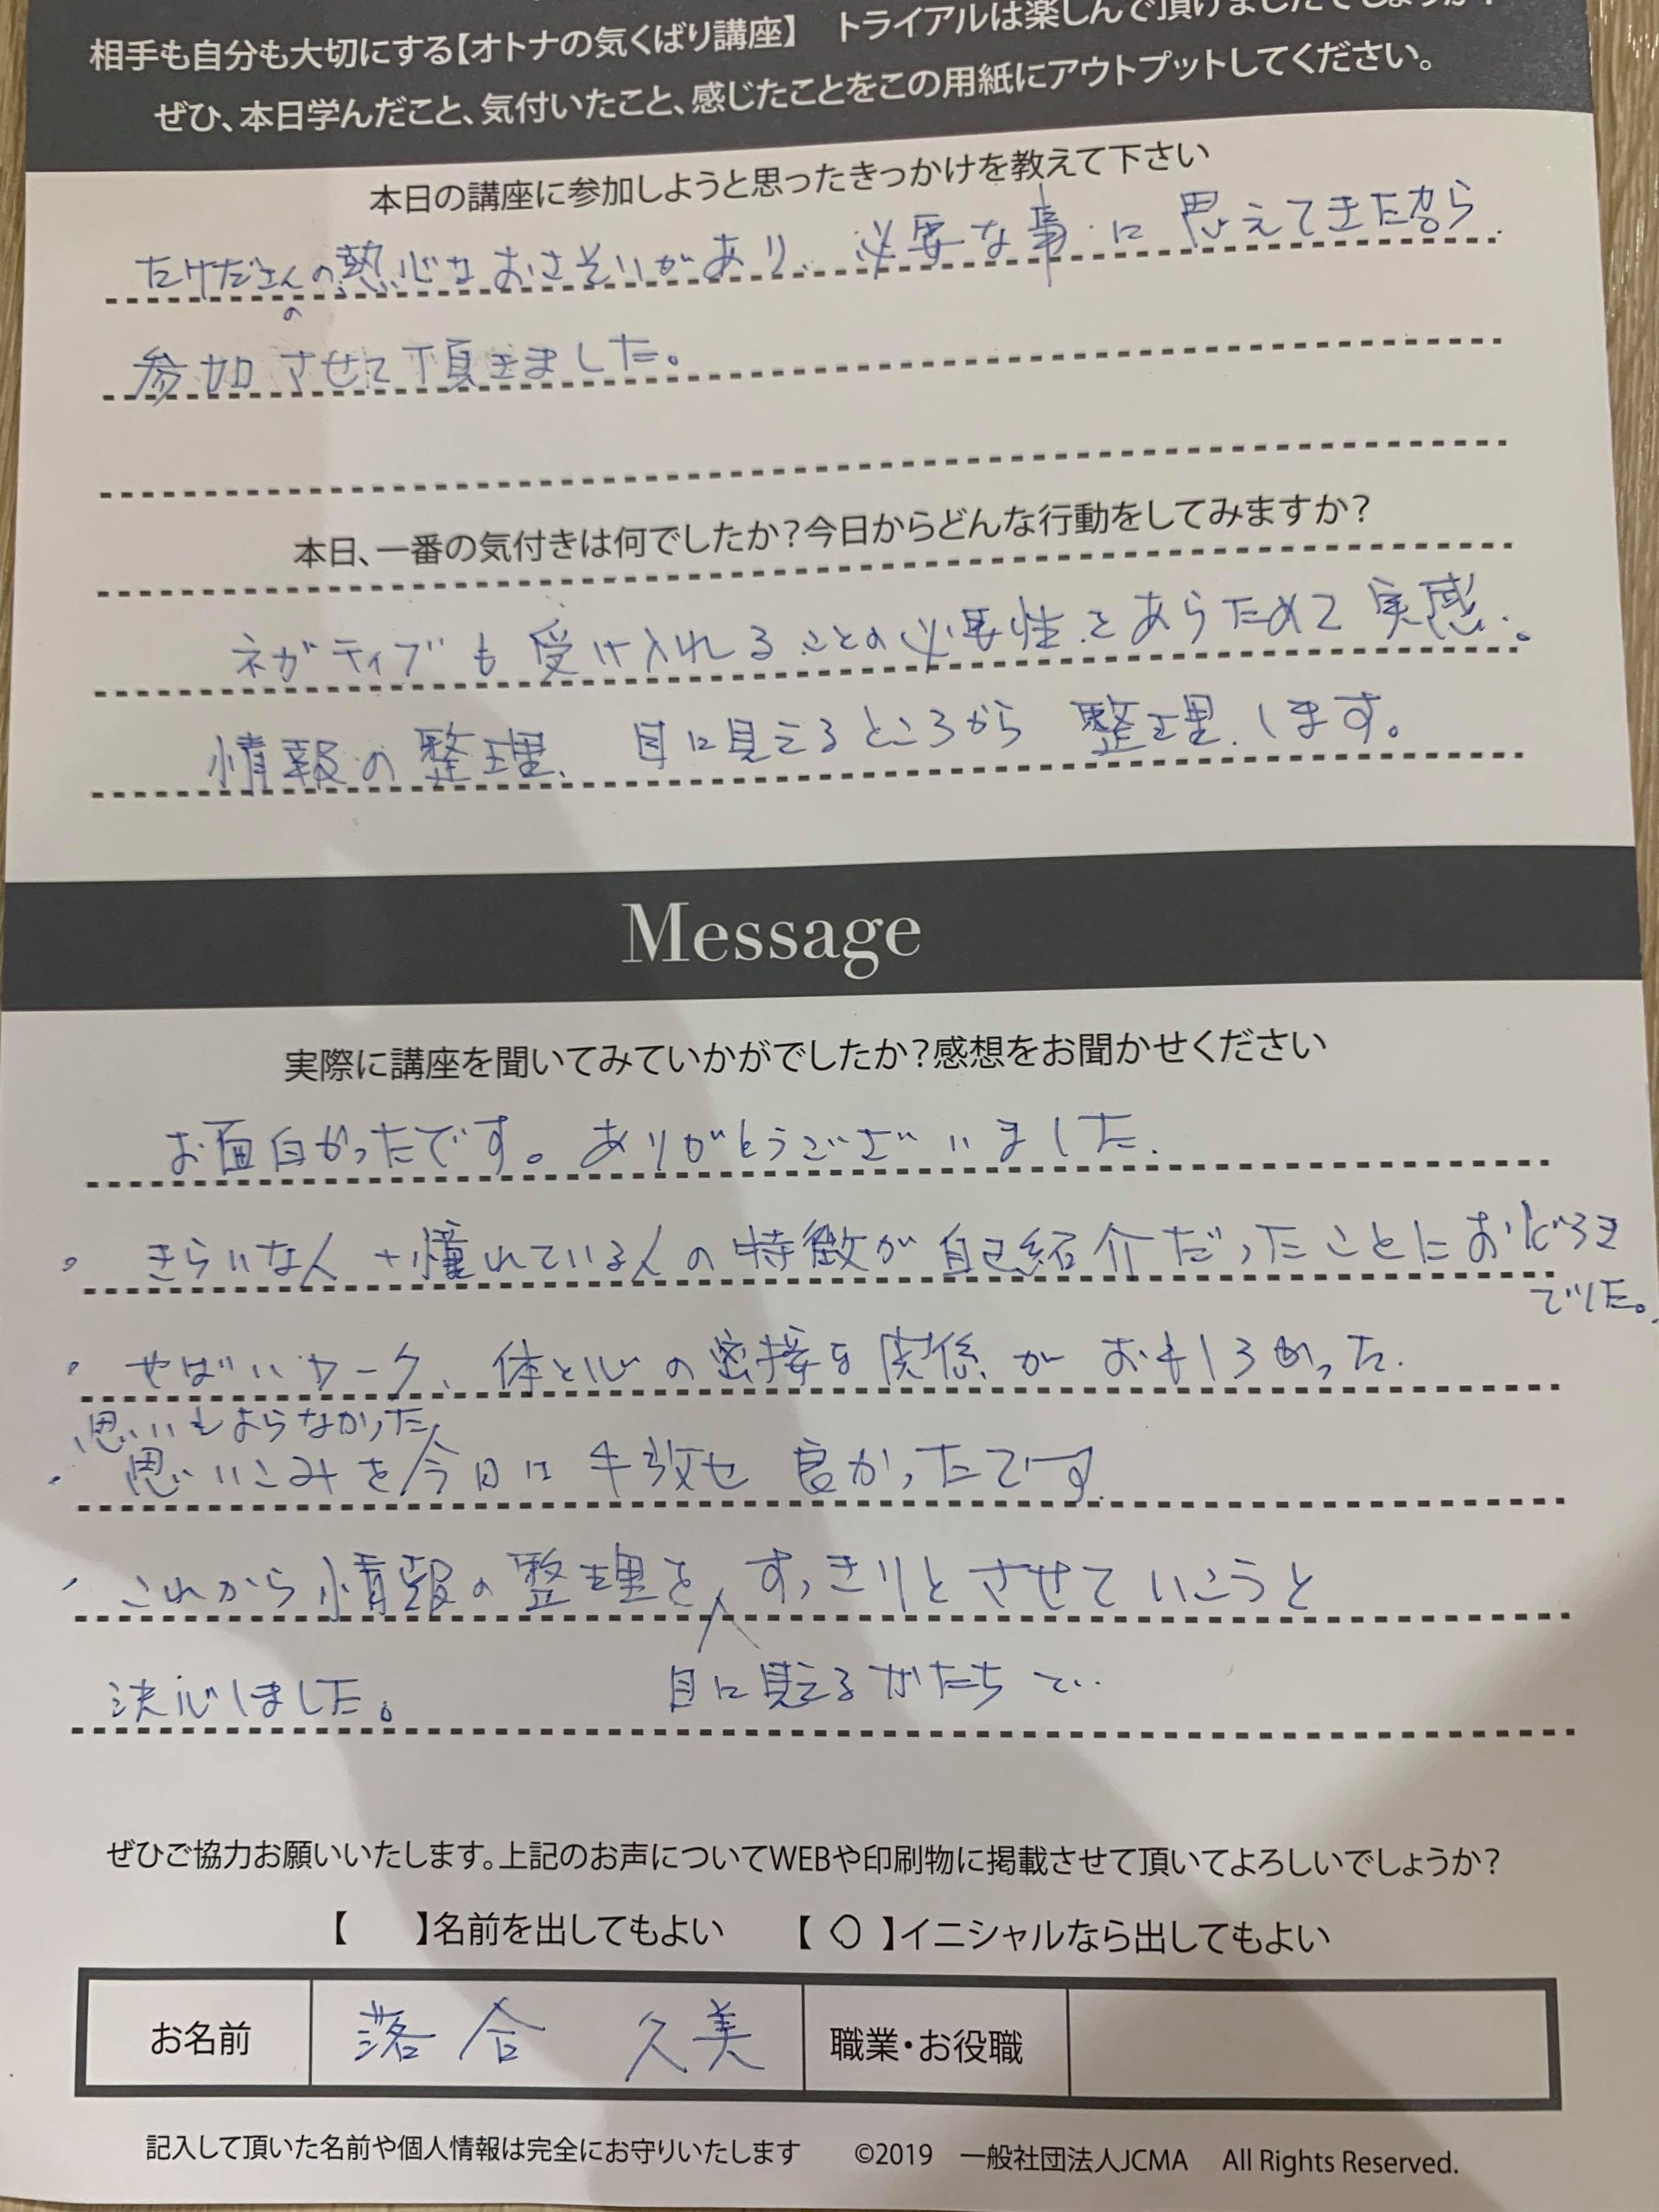 相手も自分も大切にする【オトナの気くばり講座】 トライアルは楽しんで頂けましたでしょうか?
ぜひ、本日学んだこと、気付いたこと、感じたことをこの用紙にアウトプットしてください。
本日の講座に参加しようと思ったきっかけを教えて下さい
たけださんの熱心なおさそいがあり、必要な事に思えてきたから
参加させて頂きました。
本日、一番の気付きは何でしたか?今日からどんな行動をしてみますか?
ネガティブも受け入れることの必要性をあらためて実感。
情報の整理、目に見えるところから整理します。
Message
実際に講座を聞いてみていかがでしたか?感想をお聞かせください
お面白かったです。ありがとうございました。
・きらいな人+憧れている人の特徴が自己紹介だったことにおどろき
でした。
・やばいワーク、体と心の密接な関係がおもしろかった。
思いもよらなかった
・思いこみを今日は手放せ良かったです。
・これから情報の整理をすっきりとさせていこうと
目に見えるかたちで
決心しました。
ぜひご協力お願いいたします。上記のお声についてWEBや印刷物に掲載させて頂いてよろしいでしょうか?
【 】名前を出してもよい 【 ○ 】イニシャルなら出してもよい
お名前 落合 久美 職業・お役職
記入して頂いた名前や個人情報は完全にお守りいたします ©2019 一般社団法人JCMA All Rights Reserved.